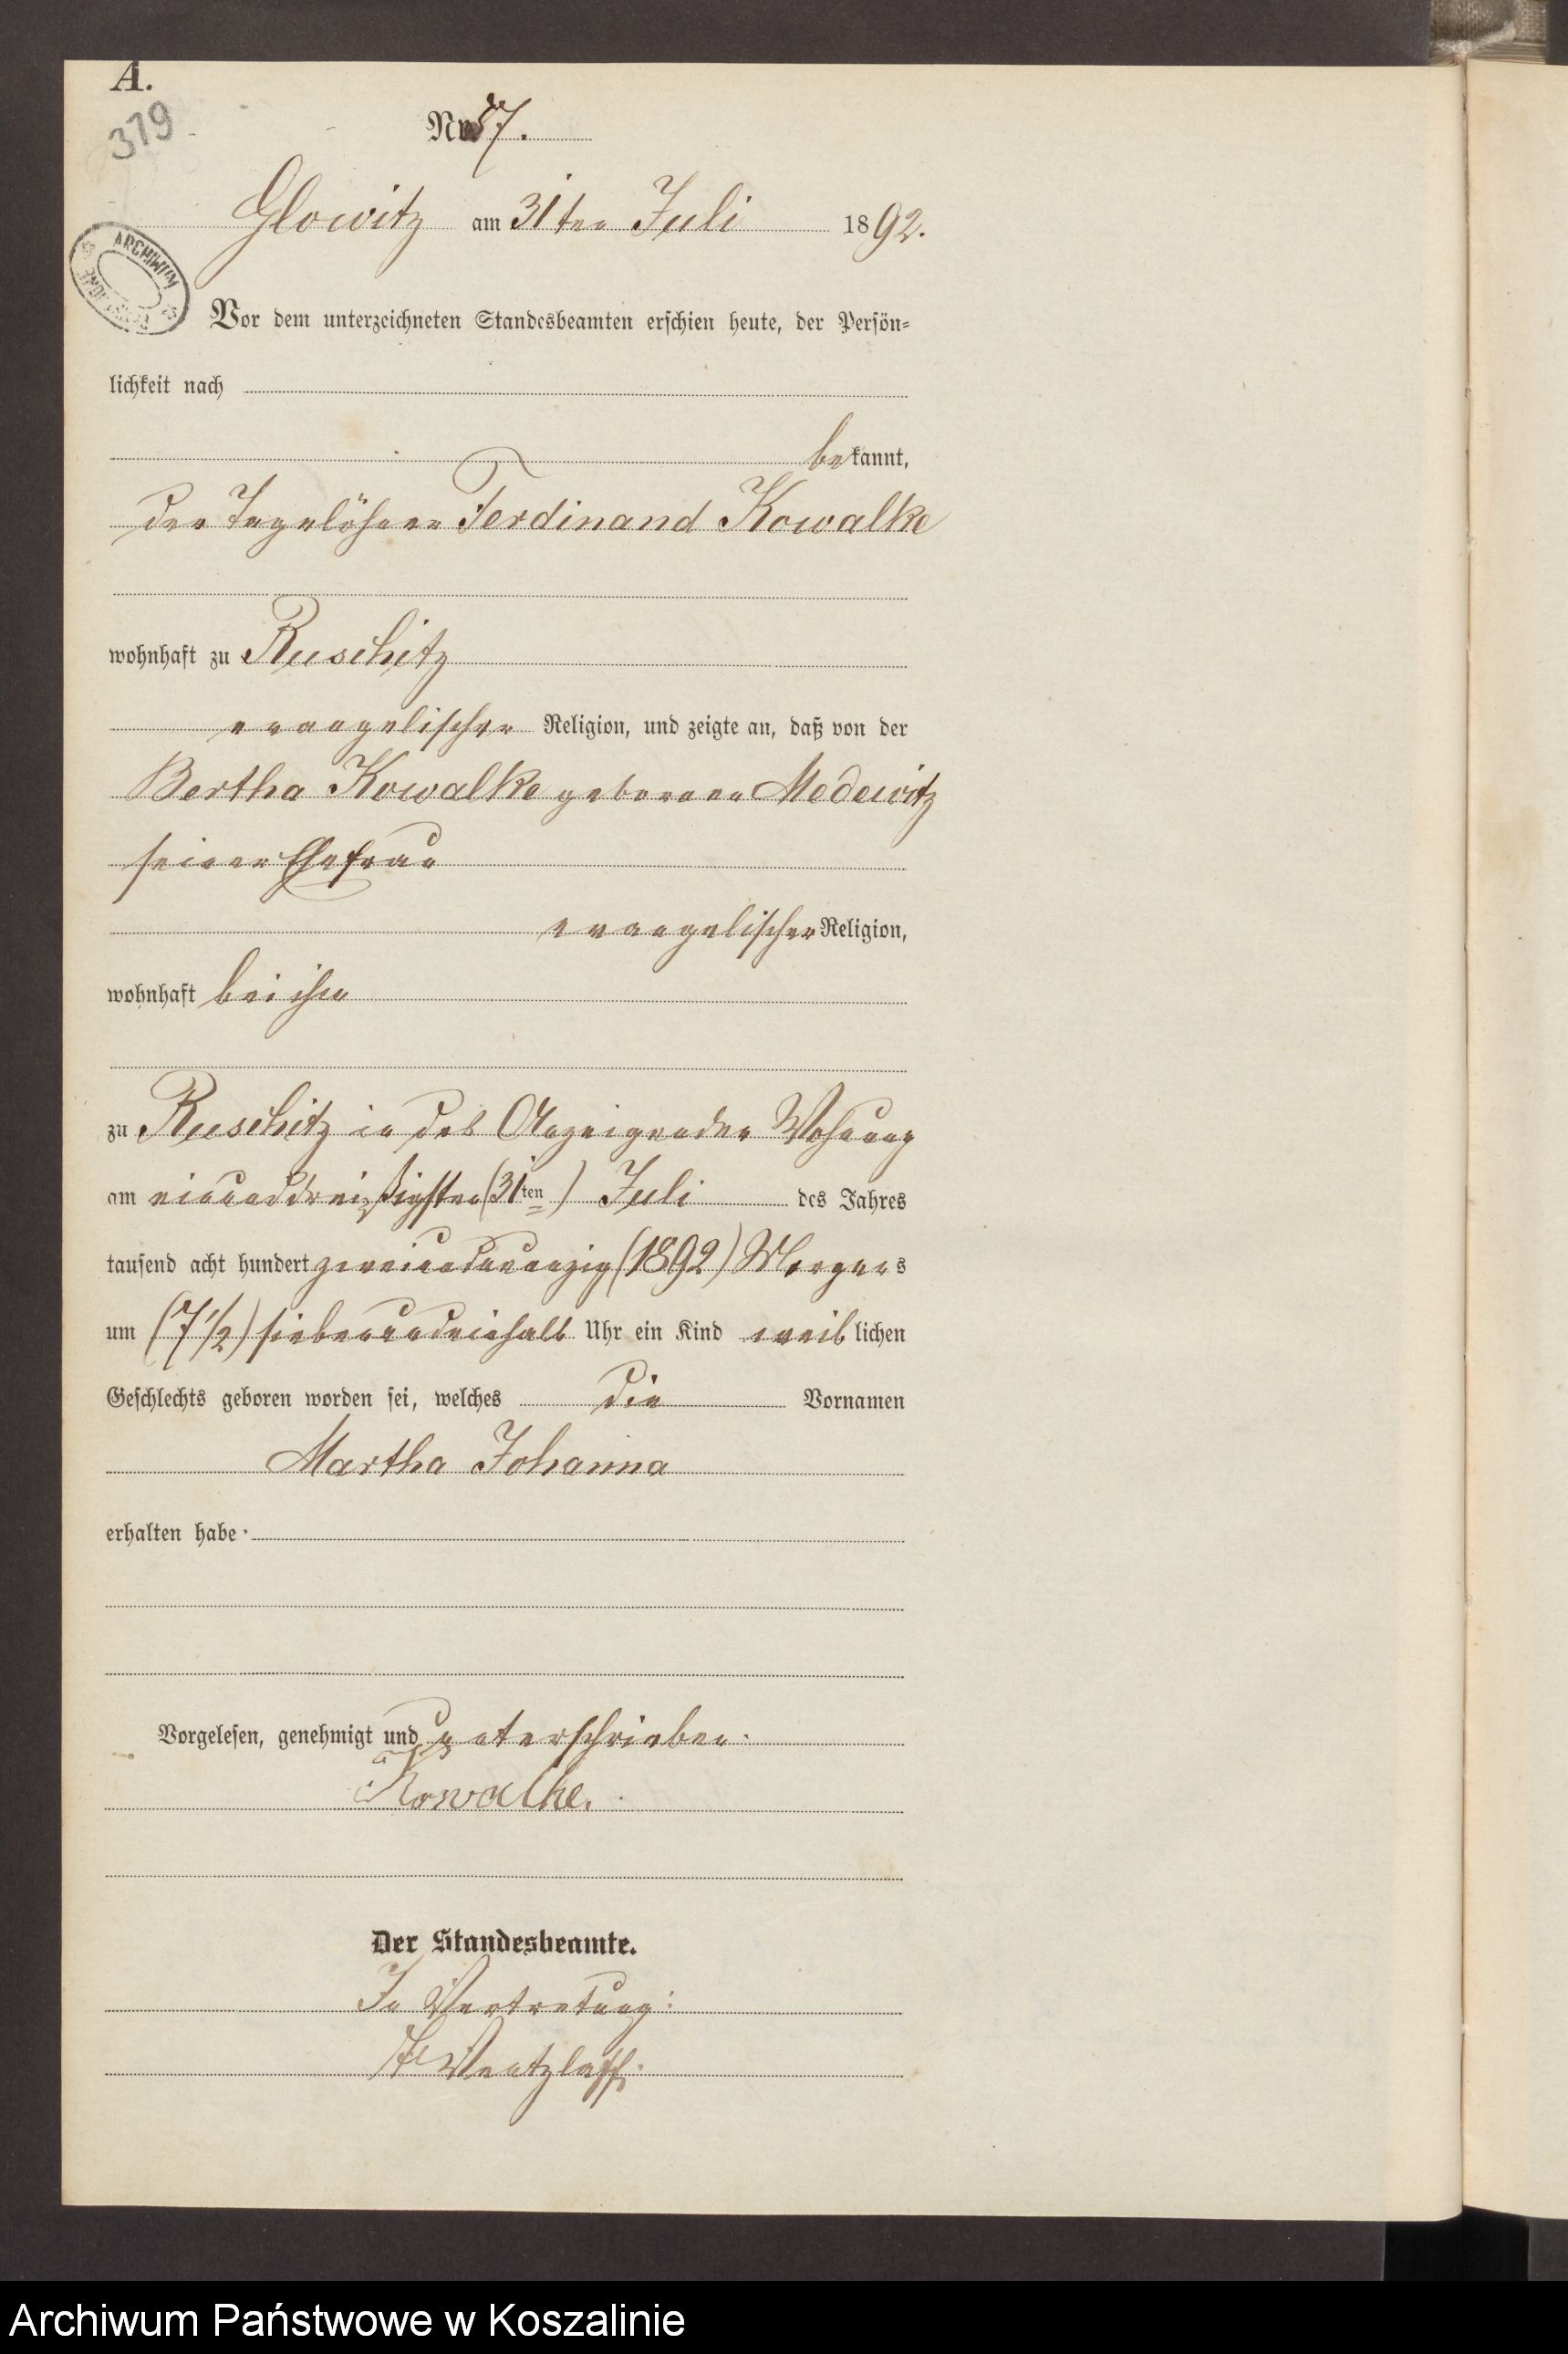 A.
379
Nr. 57.
Glowitz am 31ten Juli 1892.
ARCHIWUM
Vor dem unterzeichneten Standesbeamten erschien heute, der Persön=
lichkeit nach
bekannt,
der Tagelöhner Ferdinand Kowalke
wohnhaft zu Ruschitz
evangelischer Religion, und zeigte an, daß von der
Bertha Kowalke geborenen Modewitz
seiner Ehefrau
evangelischer Religion,
wohnhaft bei ihm
zu Ruschitz in des Anzeigenden Wohnung
am einunddreißigsten (31ten) Juli des Jahres
tausend acht hundert zweiundneunzig (1892) Morgens
um (7 1/2) siebenundeinhalb Uhr ein Kind weiblichen
Geschlechts geboren worden sei, welches die Vornamen
Martha Johanna
erhalten habe.
Vorgelesen, genehmigt und unterschrieben.
Kowalke.
Der Standesbeamte.
In Vertretung:
Wentzlaff.
Archiwum Państwowe w Koszalinie